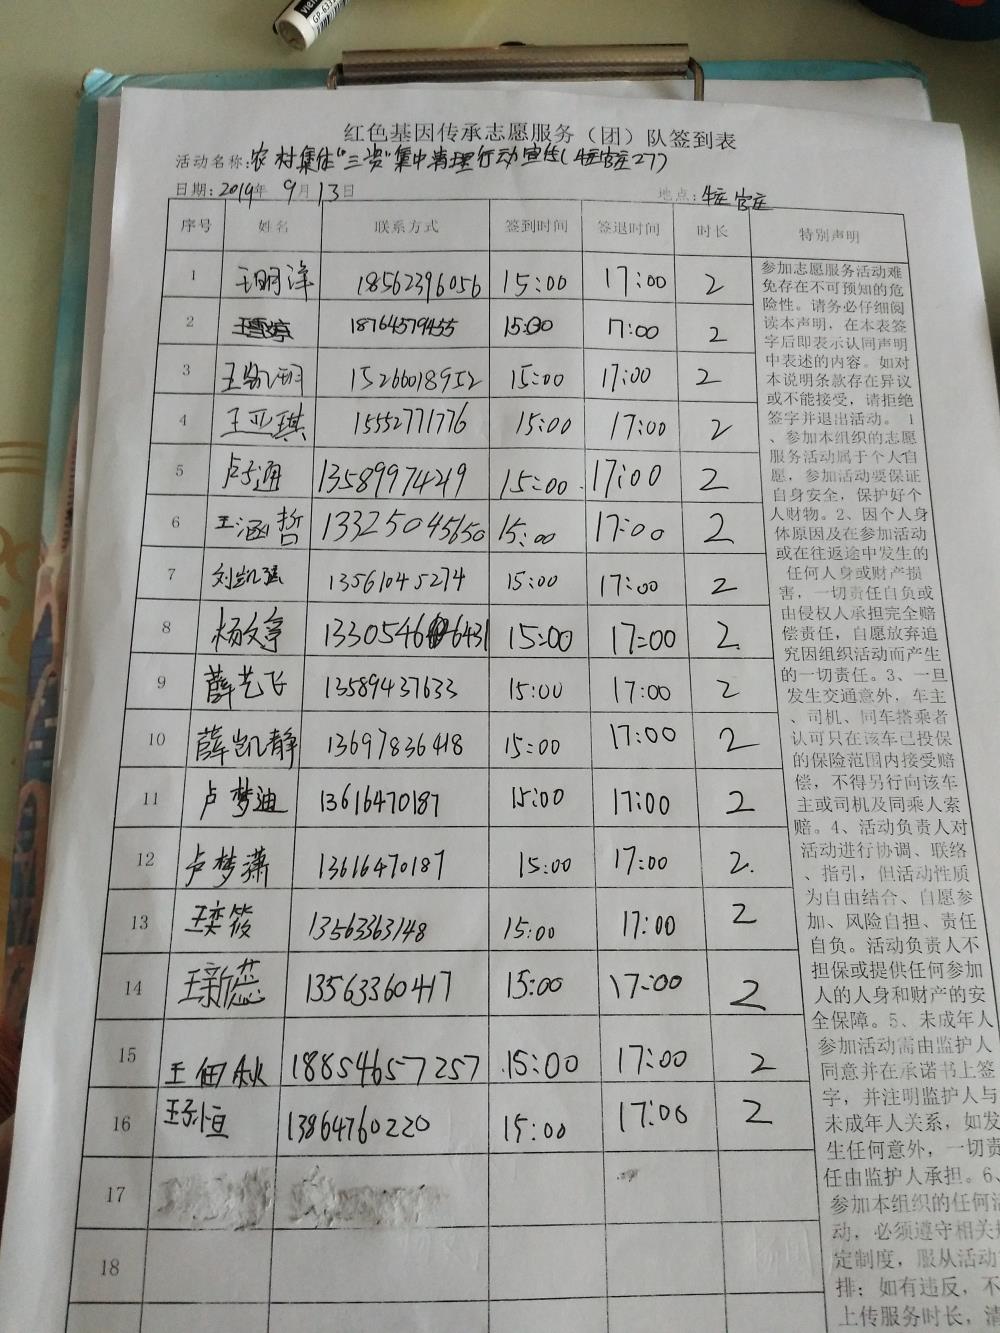 红色基因传承志愿服务（团）队签到表
活动名称：农村集体"三资"集中清理行动宣传（ 27）
日期：2019年 9月13日 地点：
序号 姓名 联系方式 签到时间 签退时间 时长 特别声明
1 王明洋 18562396056 15:00 17:00 2
2 18764579455 15:00 17:00 2
3 王凯玥 15266018952 15:00 17:00 2
4 王亚琪 15552771776 15:00 17:00 2
5 卢子通 13589974249 15:00 17:00 2
6 王涵哲 13325045650 15:00 17:00 2
7 刘凯 13561045274 15:00 17:00 2
8 杨文 1330546 6431 15:00 17:00 2
9 薛艺飞 13589437633 15:00 17:00 2
10 薛凯静 13697836418 15:00 17:00 2
11 卢梦迪 13616470187 15:00 17:00 2
12 卢梦潇 13616470187 15:00 17:00 2
13 王奕筱 13563363148 15:00 17:00 2
14 王新蕊 13563360417 15:00 17:00 2
15 王佃秋 18854657257 15:00 17:00 2
16 王子恒 13864760220 15:00 17:00 2
17
18
参加志愿服务活动难
免存在不可预知的危
险性。请务必仔细阅
读本声明，在本表签
字后即表示认同声明
中表述的内容。如对
本说明条款存在异议
或不能接受，请拒绝
签字并退出活动。 1
、参加本组织的志愿
服务活动属于个人自
愿，参加活动要保证
自身安全，保护好个
人财物。2、因个人身
体原因及在参加活动
或在往返途中发生的
任何人身或财产损
害，一切责任自负或
由侵权人承担完全赔
偿责任，自愿放弃追
究因组织活动而产生
的一切责任。3、一旦
发生交通意外，车主
、司机、同车搭乘者
认可只在该车已投保
的保险范围内接受赔
偿，不得另行向该车
主或司机及同乘人索
赔。4、活动负责人对
活动进行协调、联络
、指引，但活动性质
为自由结合、自愿参
加、风险自担、责任
自负。活动负责人不
担保或提供任何参加
人的人身和财产的安
全保障。5、未成年人
参加活动需由监护人
同意并在承诺书上签
字，并注明监护人与
未成年人关系，如发
生任何意外，一切责
任由监护人承担。6、
参加本组织的任何活
动，必须遵守相关规
定制度，服从活动
排；如有违反，不
上传服务时长，清